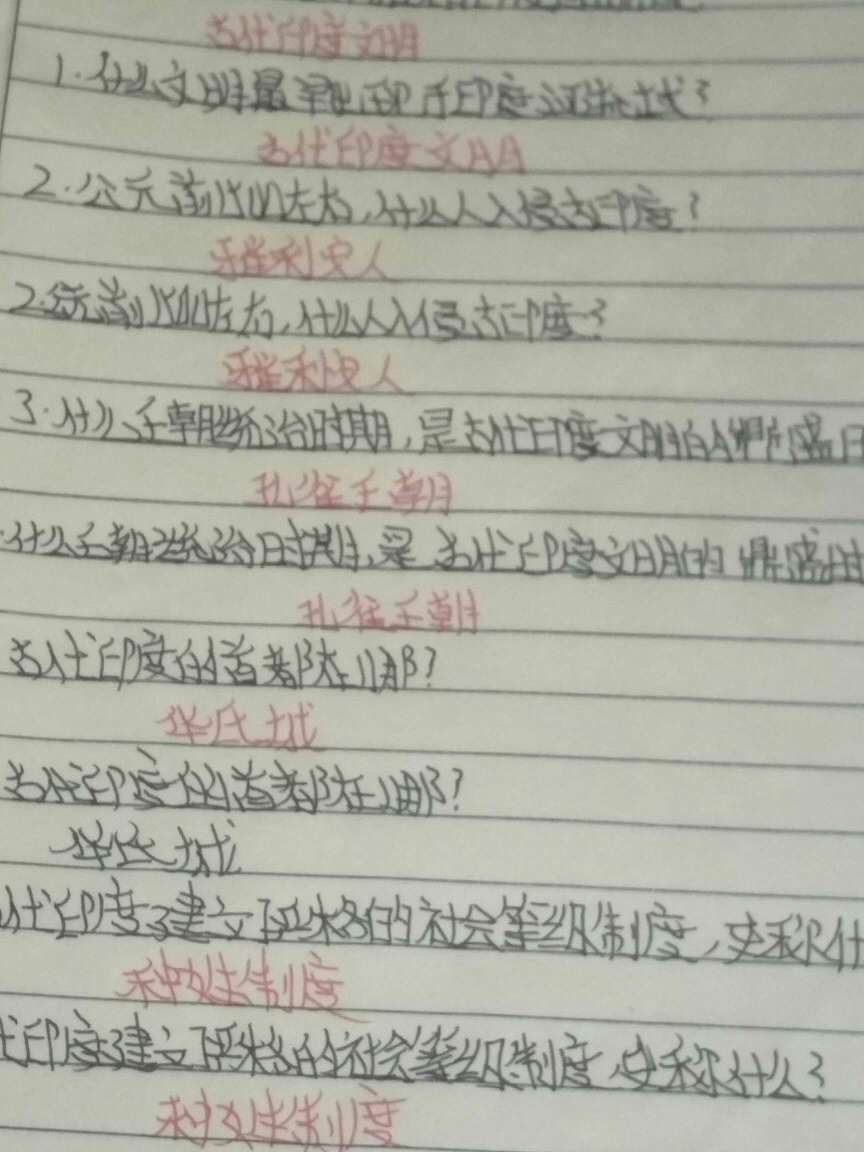 古代印度文明
1.什么文明最早出现于印度河流域?
古代印度文明
2.公元前1500左右,什么人入侵古印度?
雅利安人
2.公元前1500左右,什么人入侵古印度?
雅利安人
3.什么王朝统治时期,是古代印度文明的鼎盛
孔雀王朝
什么王朝统治时期,是古代印度文明的鼎盛时
孔雀王朝
古代印度的首都在哪?
华氏城
古代印度的首都在哪?
华氏城
代印度建立了严格的社会等级制度,史称什
种姓制度
代印度建立了严格的社会等级制度,史称什么?
种姓制度